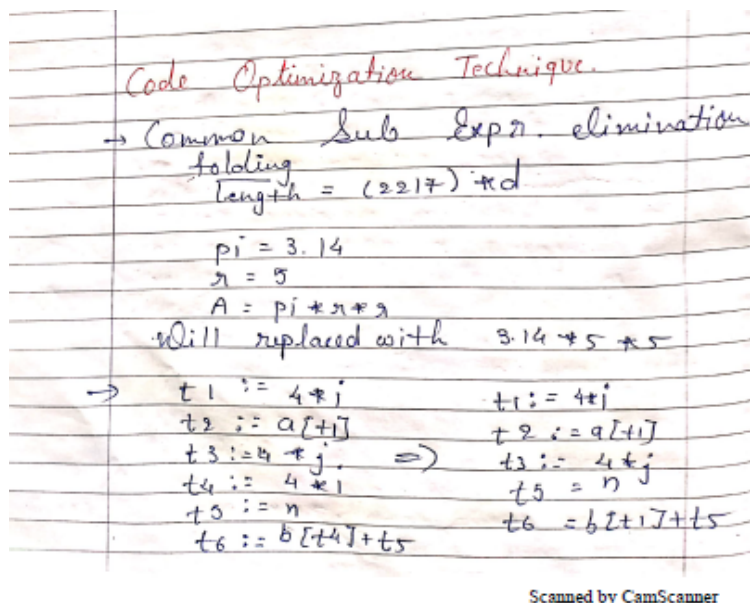 Code Optimization Technique.
→ Common Sub Expr. elimination
folding
length = (2217) *d
pi = 3.14
r = 5
A = pi * r * r
Will replaced with 3.14 * 5 * 5
→ t1 := 4*j t1 := 4*j
t2 := a[t1] t2 := a[t1]
t3 := 4 * j. ⇒ t3 := 4 * j
t4 := 4 * i t5 = n
t5 := n t6 = b[t1]+t5
t6 := b[t4]+t5
Scanned by CamScanner